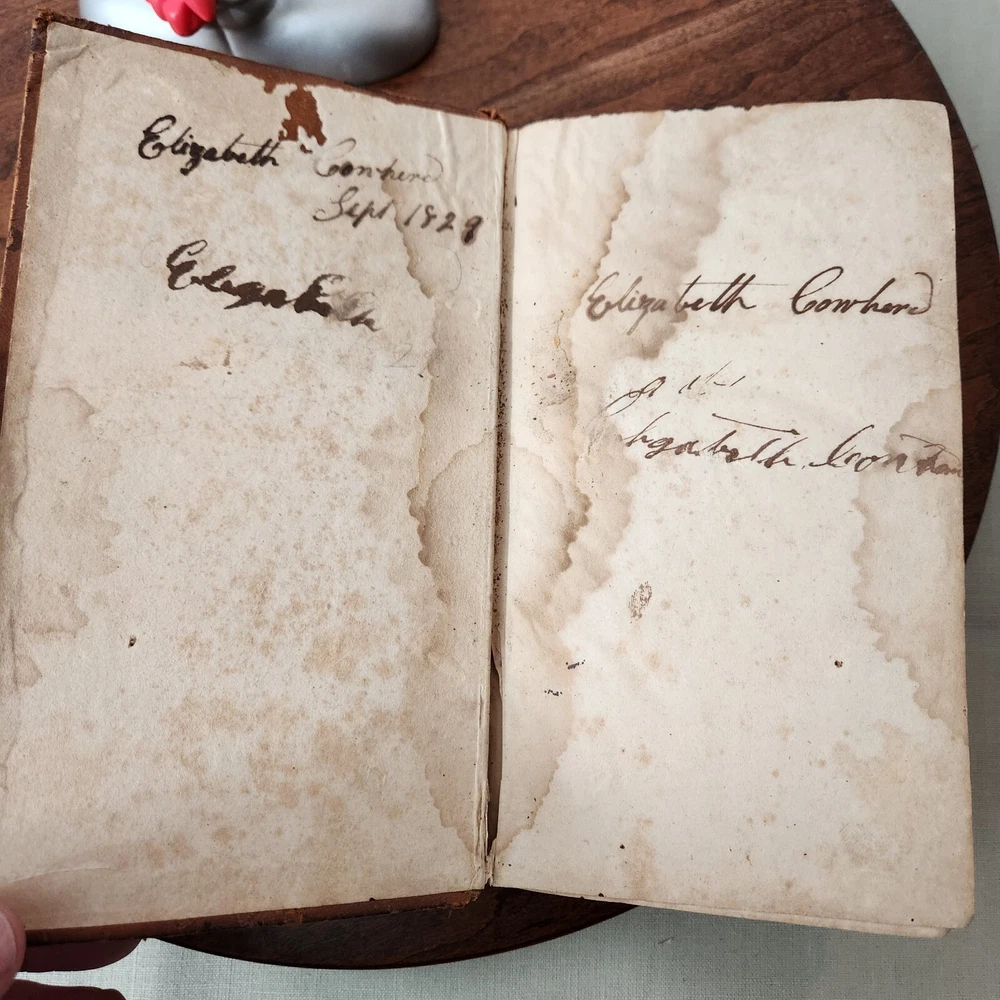 Elizabeth Cowherd
Sept 1829
Elizabeth
Elizabeth Cowherd
Elizabeth